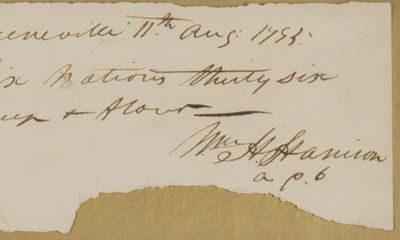 eeneville 11th Aug. 1795.
ix Nations thirty six
& flour
Wm H. Harrison